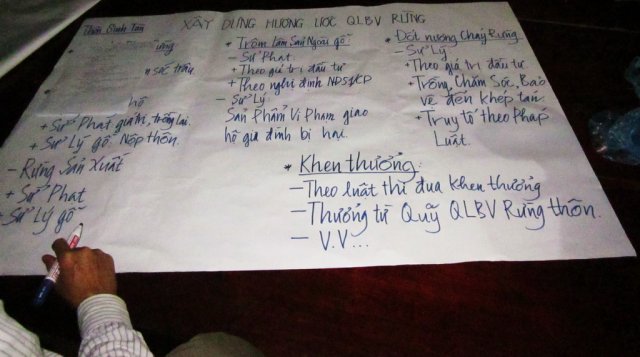 Thôn Bình Tân
XÂY DỰNG HƯƠNG ƯỚC QLBV RỪNG
rừng
sóc trâu
hộ
+ Sử Phạt giá trị, trồng lại.
+ Sử Lý gỗ. Nộp thôn.
- Rừng Sản Xuất
+ Sử Phạt
+ Sử Lý gỗ
* Trộm Lâm Sản Ngoài gỗ
- Sử Phạt.
+ Theo giá trị đầu tư
+ Theo nghị định NĐ99/CP
- Sử Lý
Sản Phẩm Vi Phạm giao
hộ gia đình bị hại.
* Đốt nương Cháy Rừng
- Sử Lý
+ Theo giá trị đầu tư
+ Trồng, Chăm Sóc, Bảo
vệ đến khép tán
+ Truy tố theo Pháp
Luật.
* Khen thưởng:
- Theo luật thi đua khen thưởng
- Thưởng từ Quỹ QLBV Rừng thôn.
- V.V...